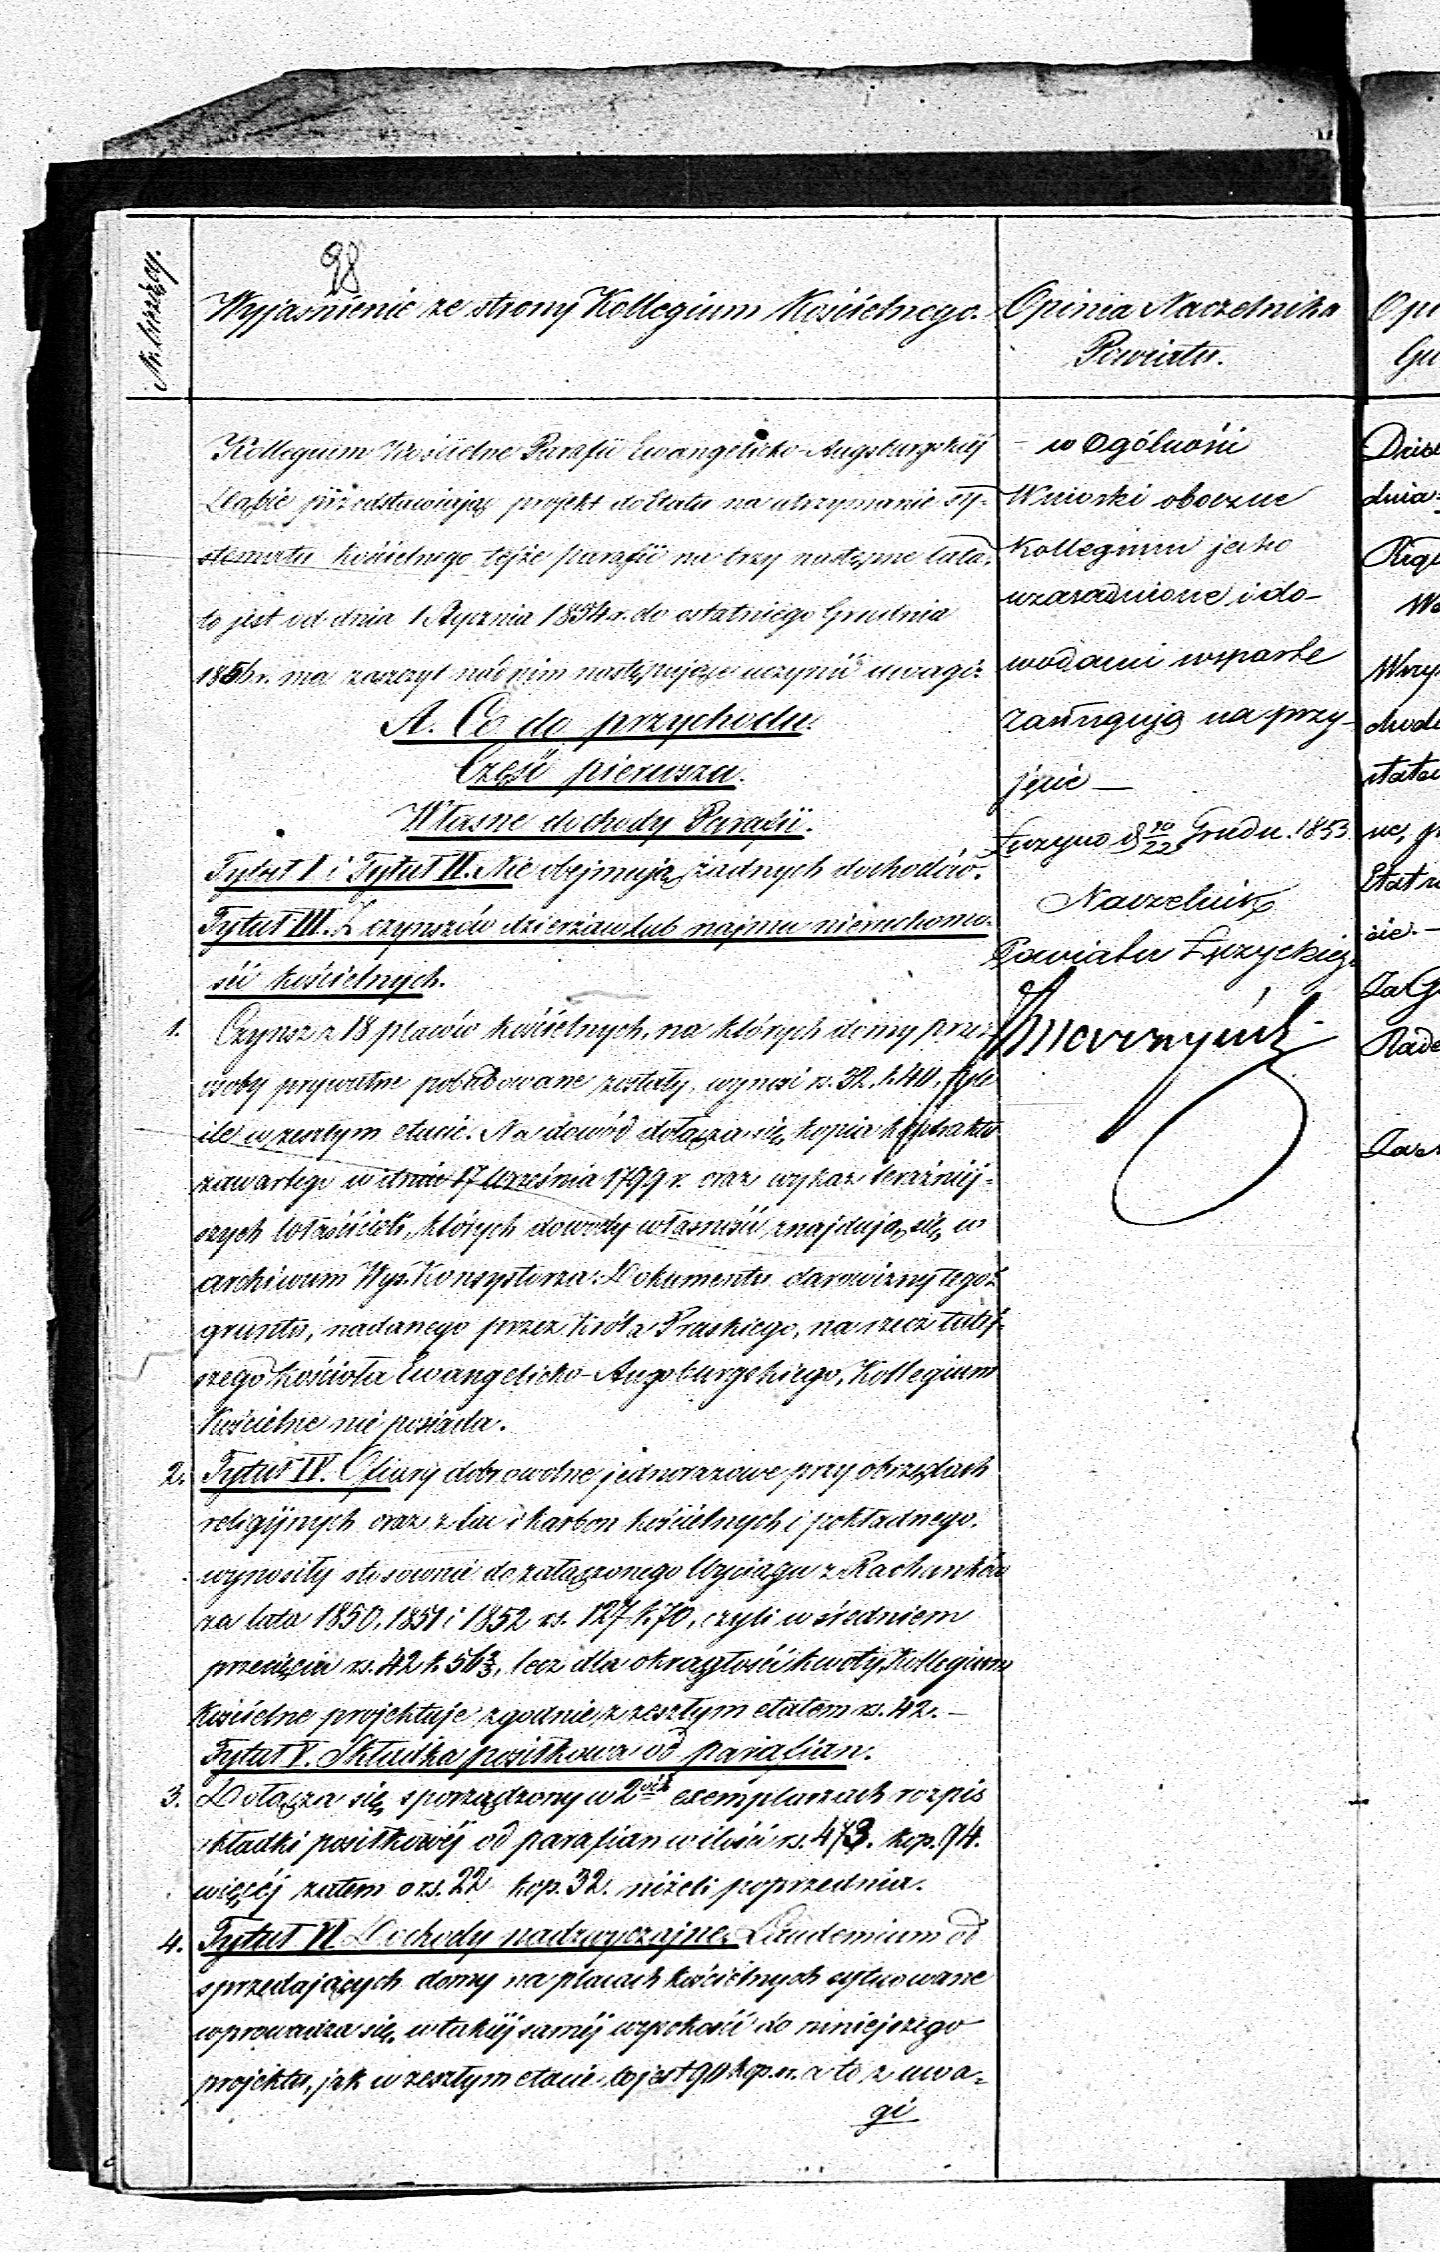 98
Nr bieżący.
Wyjaśnienie ze strony Kollegium Kościelnego.
Kollegium Kościelne Parafii Ewangelicko-Augsburgskiéj
przedstawiając projekt do Etatu na utrzymanie sy-
stematu kościelnego tejże parafii na trzy następne lata,
to jest od dnia 1 Stycznia 1854 r. do ostatniego Grudnia
1856 r. ma zaszczyt nad nim następujące uczynić uwagi:
A. Co do przychodu.
Część pierwsza.
Własne dochody Parafii.
Tytuł I i Tytuł II. Nie obejmują żadnych dochodów.
Tytuł III. Z czynszów dzierżaw lub najmu nieruchomo-
ści kościelnych.
1. Czynsz z 18 placów kościelnych, na których domy przez
osoby prywatne pobudowane zostały, wynosi rs. 32. k. 40, tyle
ile w zeszłym etacie. Na dowód dołącza się kopia kontraktu
zawartego w dniu 17 Września 1799 r. oraz wykaz teraźniej-
szych właścicieli, których dowody własności znajdują się w
archiwum Wys. Konsystorza. Dokumentu darowizny tegoż
gruntu, nadanego przez Króla Pruskiego, na rzecz tutej-
szego kościoła Ewangelicko-Augsburgskiego, Kollegium
Kościelne nie posiada.
2. Tytuł IV. Ofiary dobrowolne jednorazowe przy obrzędach
religijnych oraz z tac i karbon kościelnych i pokładnego.
wynosiły stosownie do załączonego Wyciągu z Rachunków
za lata 1850, 1851 i 1852 rs. 127 k. 70, czyli w średniem
przecięciu rs. 42 k. 56 2/3, lecz dla okrągłości kwoty, Kollegium
Kościelne projektuje zgodnie z zeszłym etatem rs. 42. –
Tytuł V. Składka posiłkowa od parafian.
3. Dołącza się sporządzony w 2ch exemplarzach rozpis
składki posiłkowéj od parafian w ilości rs. 473. kop. 94.
więcéj zatem o rs. 22 kop. 32. niżeli poprzednia.
4. Tytuł VI. Dochody nadzwyczajne. Laudemium od
sprzedających domy na placach kościelnych sytuowane
wprowadza się w takiéj saméj wysokości do niniejszego
projektu, jak w zeszłym etacie, to jest 90 kop. sr. a to z uwa-
gi
Opinia Naczelnika
Powiatu.
– w Ogólności
Wnioski oboczne
Kollegium jako
uzasadnione i do-
wodami wsparte
zasługują na przy-
jęcie –
d 10/22 Grudn. 1853
Naczelnik
Powiatu Łęczyckiego